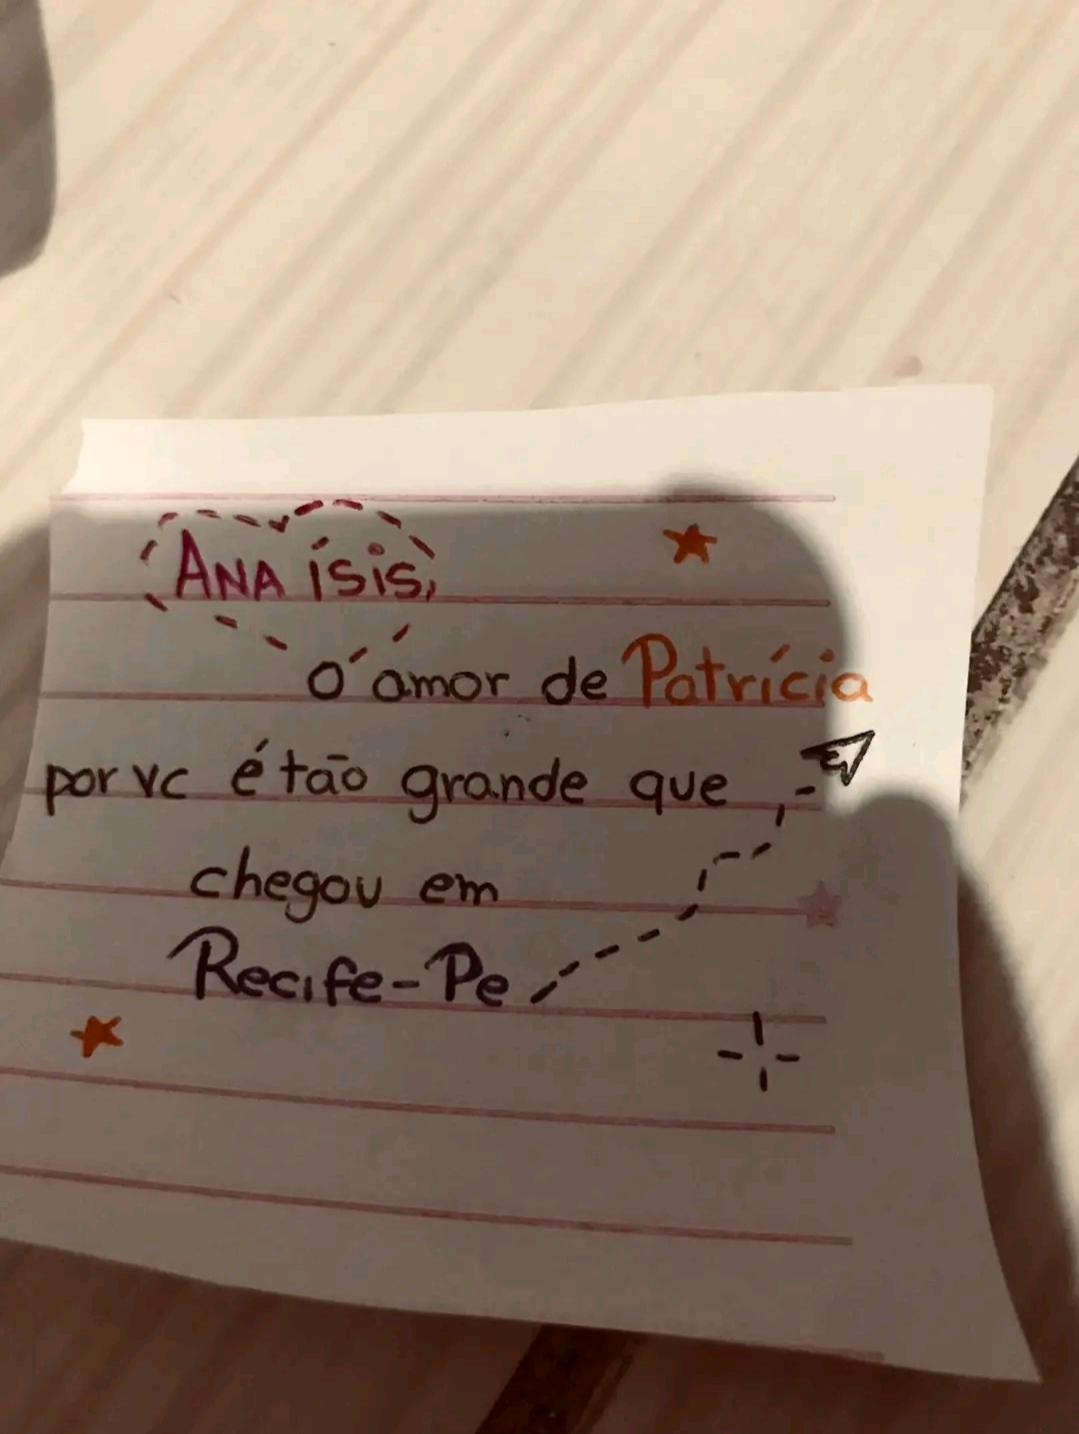 ANA ísis,
o amor de Patrícia
por vc é tão grande que
chegou em
Recife-Pe